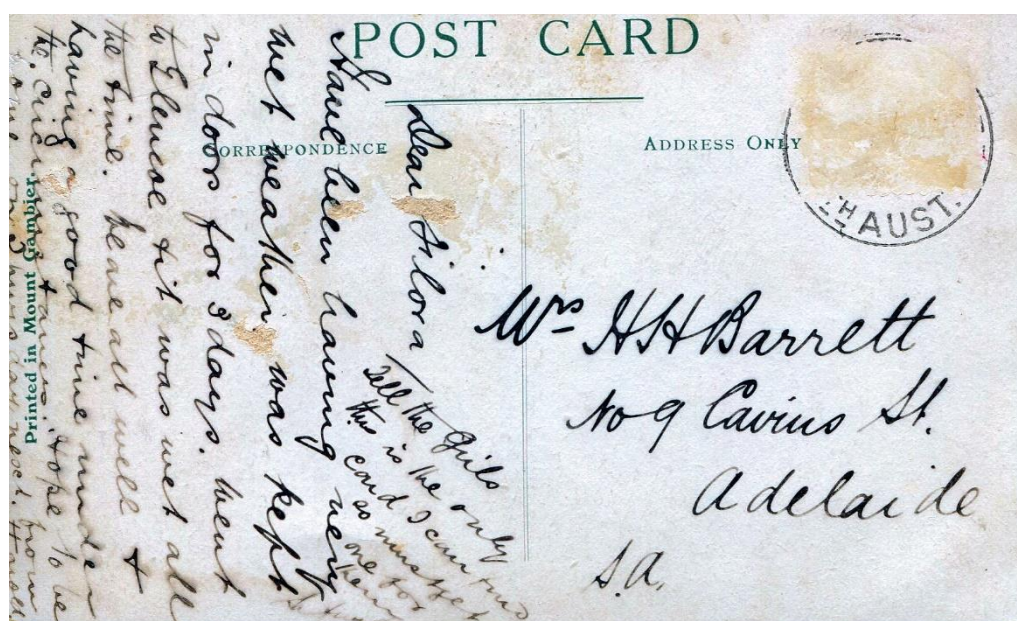 POST CARD
CORRESPONDENCE
ADDRESS ONLY
H AUST.
Printed in Mount Gambier.
Dear Filora
I have been having very
wet weather, was kept
in doors for 3 days. went
to Glencoe & it was wet all
the time. have all well &
having a good time under
the circumstances. Hope to be
Tell the Girls
this is the only
card I can
so must get
one for
Mrs H H Barrett
No 9 Cavius St.
Adelaide
S.A.